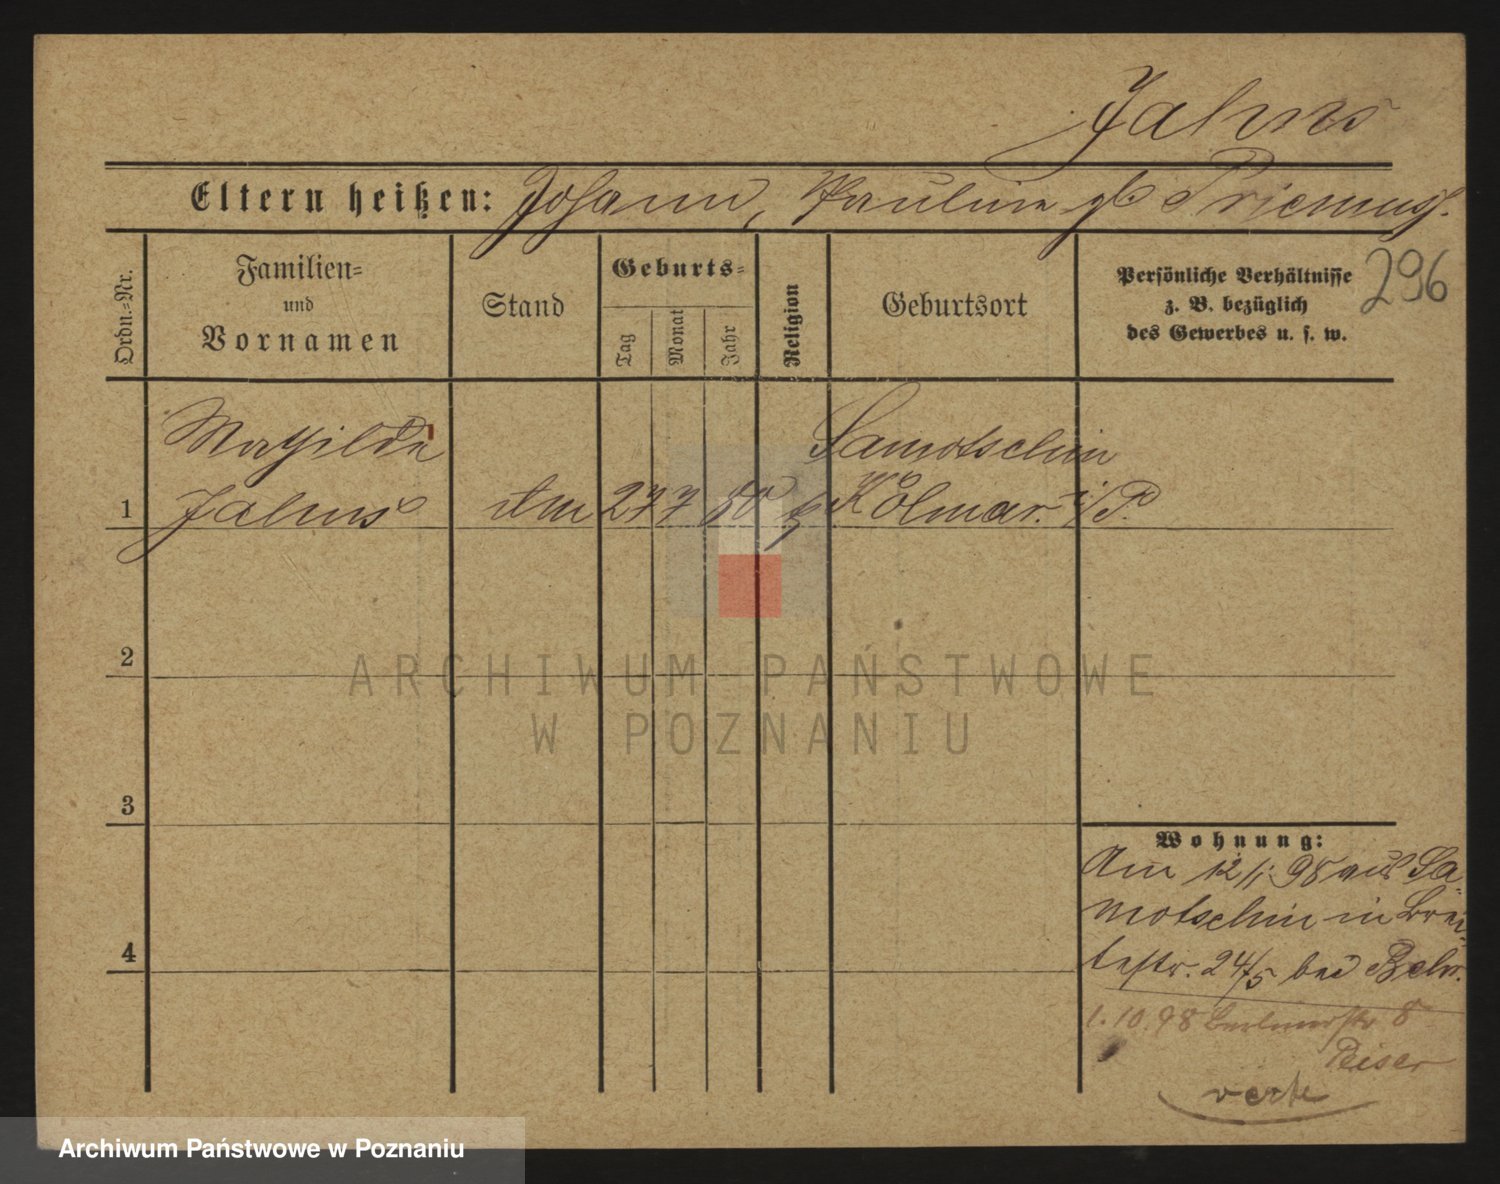 Jahns
Eltern heißen: Johann, Pauline gb Priemus.
Ordn.=Nr.
Familien=
und
Vornamen
Stand
Geburts=
Tag
Monat
Jahr
Religion
Geburtsort
Persönliche Verhältnisse
z. B. bezüglich
des Gewerbes u. s. w.
296
Mathilde
Jahns
1
27 7
Samotschin
Kolmar i/P.
2
3
4
ARCHIWUM PAŃSTWOWE
W POZNANIU
Wohnung:
Am 12/1. 98 aus Sa=
motschin in Brei=
testr. 24/5 bei
1.10.98 Berlinerstr 8
Peiser
verte
Archiwum Państwowe w Poznaniu